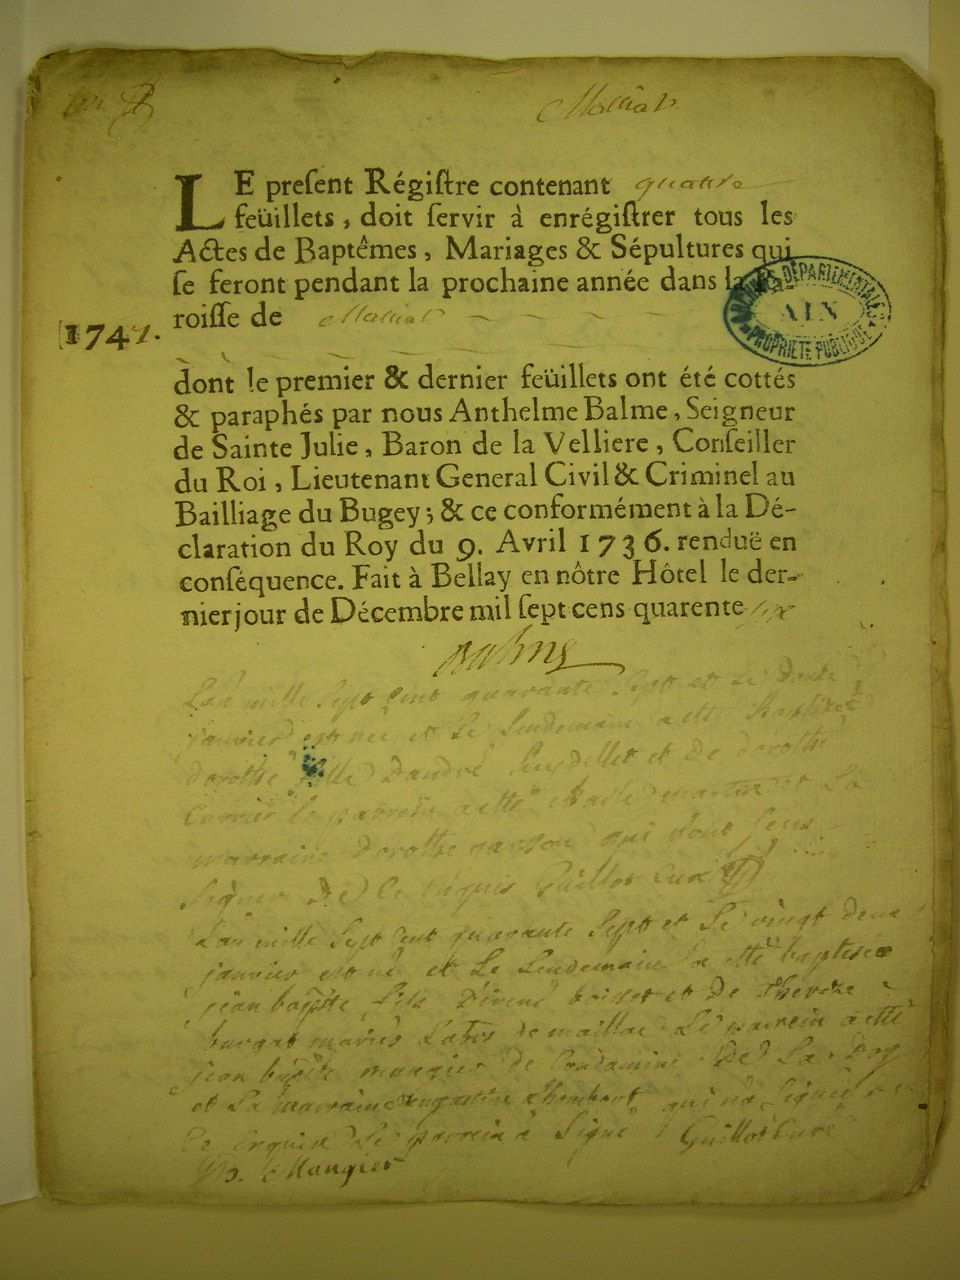 Maillat
LE preſent Régiſtre contenant quatre
feüillets, doit ſervir à enrégiſtrer tous les
Actes de Baptêmes, Mariages & Sépultures qui
ſe feront pendant la prochaine année dans la Pa-
roiſſe de Maillat
1747.
ARCHIVES DÉPARTEMENTALES
AIN
PROPRIÉTÉ PUBLIQUE
dont le premier & dernier feüillets ont été cottés
& paraphés par nous Anthelme Balme, Seigneur
de Sainte Julie, Baron de la Velliere, Conſeiller
du Roi, Lieutenant General Civil & Criminel au
Bailliage du Bugey; & ce conformément à la Dé-
claration du Roy du 9. Avril 1736. renduë en
conſéquence. Fait à Bellay en nôtre Hôtel le der-
nier jour de Décembre mil ſept cens quarente six
Balme
Lan mille Sept Cent quarante Sept et le douze
janvier est nee et le lendemain a ette baptisee
dorothe fille dandré et de dorothe
le parrein a ette martin et la
marraine dorothe qui nont sceus
Signer de ce requis Guillot Curé
Lan mille Sept Cent quarante Sept et Le vingt deux
janvier est né et Le Lendemain a etté baptisé
jean bapte fils et de thereze
mariés de maillac Le parrein a etté
jean bapte maugier de Condamine de La Doy
et La marraine qui na Signé
de ce requise Le parrein a Signé Guillot Curé
Maugier